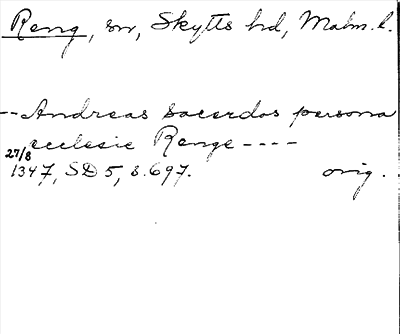 Reng, sn, Skytts hd, Malm. l.
-- Andreas sacerdos persona
ecclesie Renge ----
27/8
1347, SD 5, s. 697. orig.